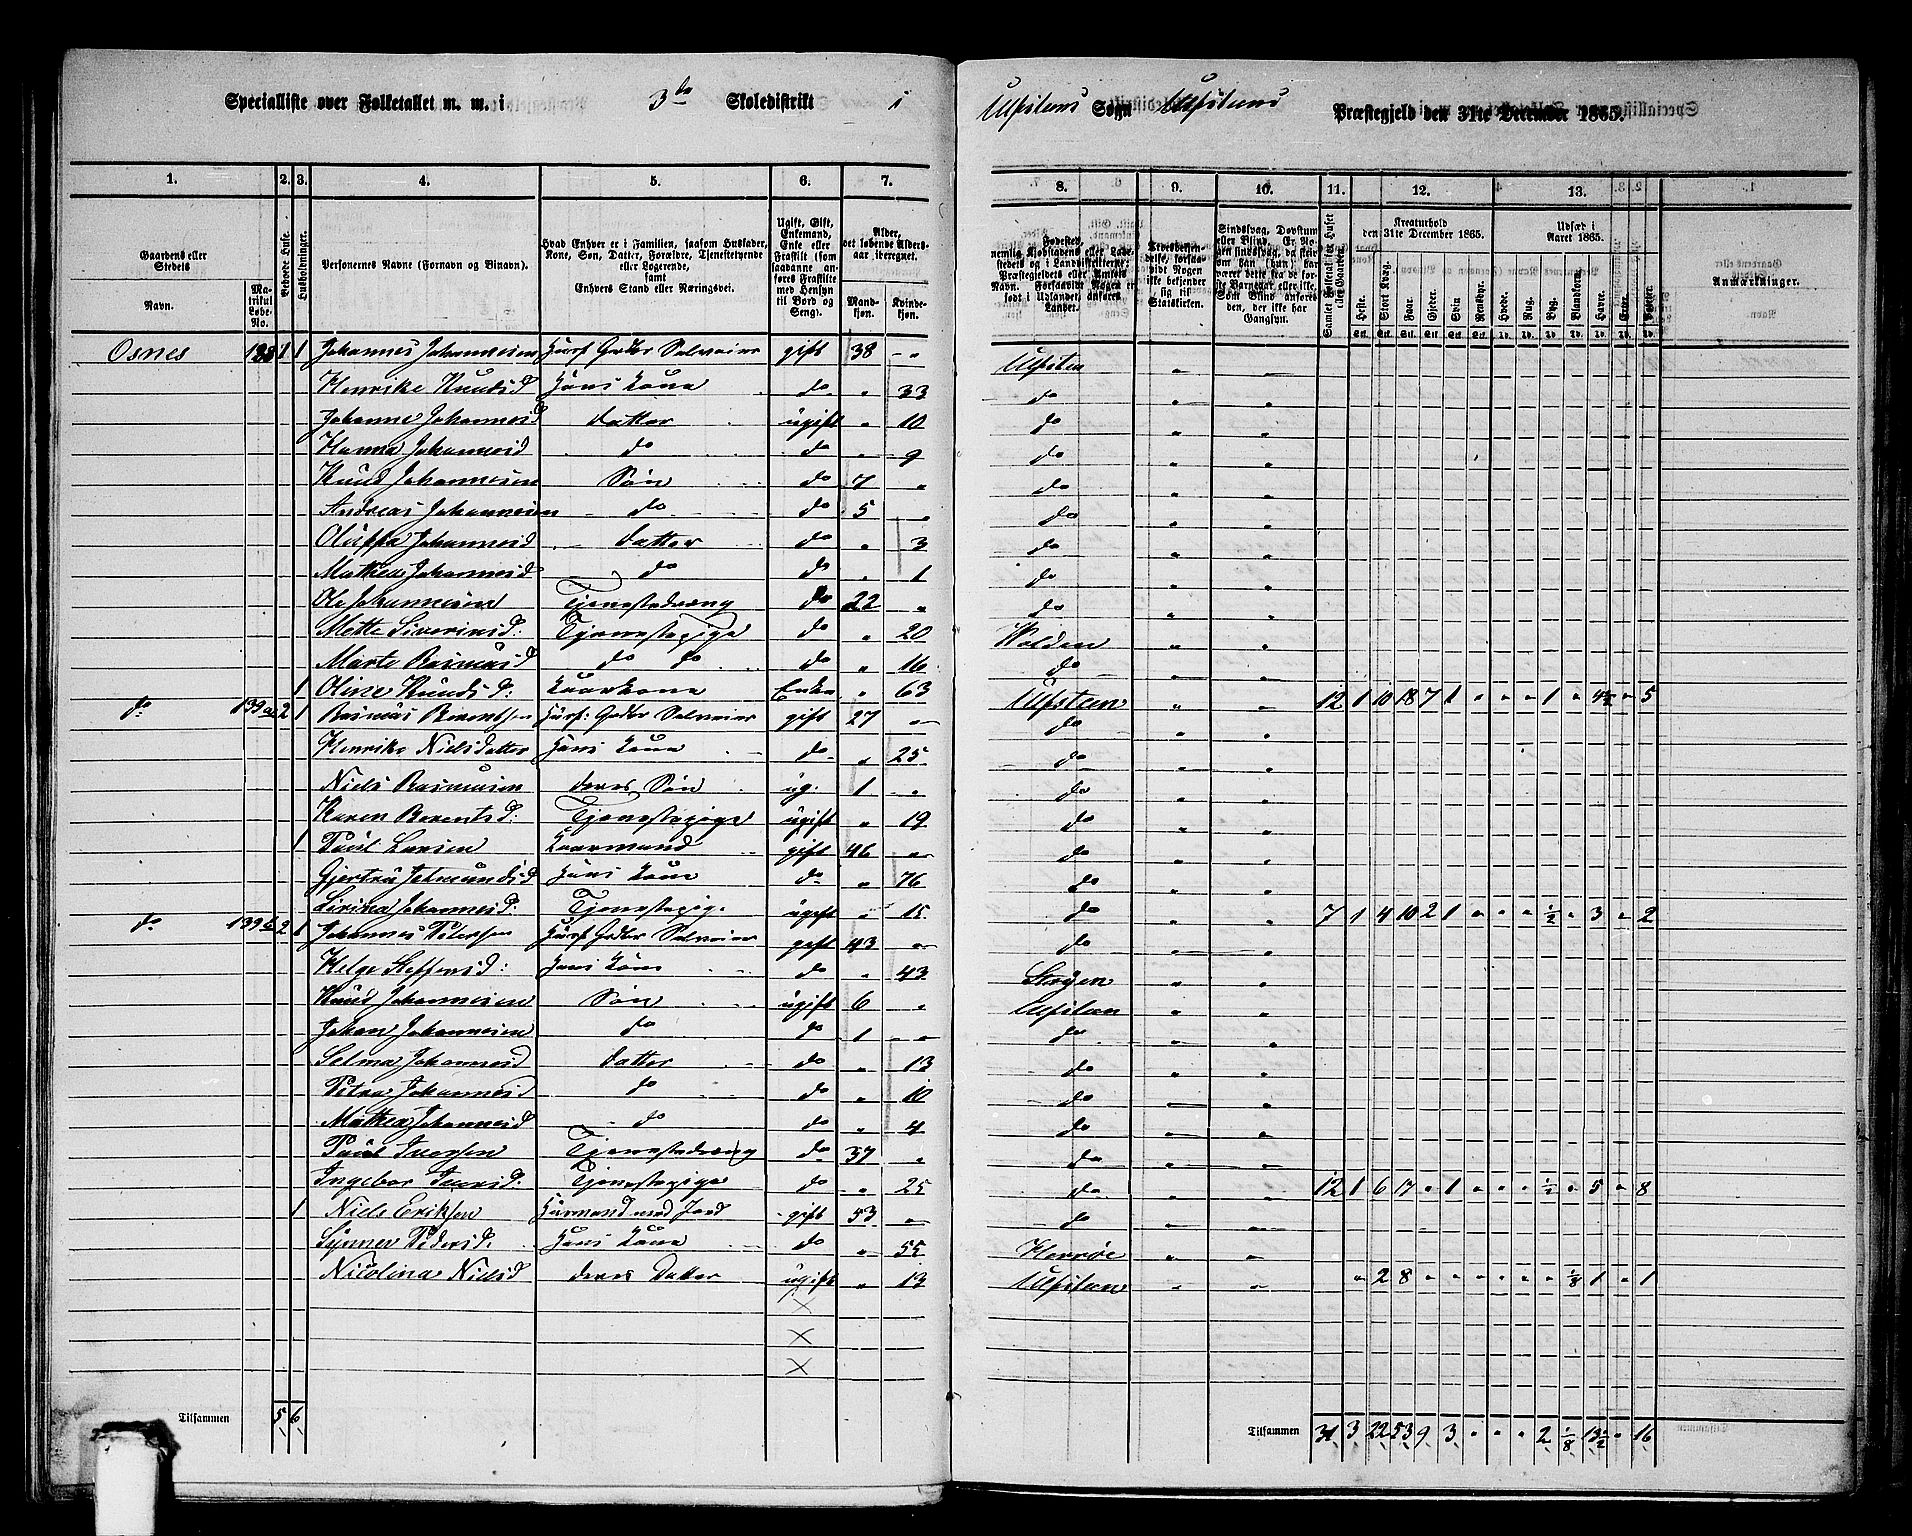 Specialliste over Folketallet m. m. i 3die Skoledistrikt i Ulfstens Sogn Ulfstens Præstegjeld den 31te December 1865.
1. 2. 3. 4. 5. 6. 7. 8. 9. 10. 11. 12. 13.
Gaardens eller Stedets Navn. Matrikul Løbe-No. Beboede Huse. Husholdninger. Personernes Navne (Fornavn og Binavn). Hvad Enhver er i Familien, saasom Husfader, Kone, Søn, Datter, Forældre, Tjenestetyende eller Logerende, samt Enhvers Stand eller Næringsvei. Ugift, Gift, Enkemand, Enke eller Fraskilt (som saadanne anføres Fraskilte med Hensyn til Bord og Seng). Alder, det løbende Aldersaar iberegnet. Mandkjøn. Kvindekjøn.
Kreaturhold den 31te December 1865. Udsæd i Aaret 1865.
Heste. Stort Kvæg. Faar. Gjeder. Svin. Rensdyr. Hvede. Rug. Byg. Blandkorn. Havre. Erter. Poteter.
Osnes 138 1 1 Johannes Johannesen Huusf Gaardbr Selveier gift 38 " Ulfsten " "
Henrike Knudsd Hans Kone do " 33 do " "
Johanne Johannesd Datter ugift " 10 do " "
Hanna Johannesd do do " 9 do " "
Knud Johannesen Søn do 7 " do " "
Andreas Johannesen do do 5 " do " "
Oluffa Johannesd Datter do " 3 do " "
Mathea Johannesd do do " 1 do " "
Ole Johannesen Tjenestedreng do 22 " do " "
Mette Siverinsd: Tjenestepige do " 20 Volden " "
Marte Rasmusd do do do " 16 do " "
1 Oline Knudsd: Kaarkone Enke " 63 Ulfsten " " 12 1 10 18 7 1 " " " 1 " 4½ " 5
do 139a 2 1 Rasmus Berentsen Huusf: Gaardbr Selveier gift 27 " do " "
Henrike Nielsdatter Hans Kone do " 25 do " "
Niels Rasmusen deres Søn ug. 1 " do " "
Karen Berentsd: Tjenestepige ugift " 19 do " "
1 Poul Larsen Kaarmand gift 46 " do " "
Gjertru Jetmundsd Hans Kone do " 76 do " "
Johannesd: Tjenestepig. ugift " 15 do " " 7 1 4 10 2 1 " " " ½ " 3 " 2
do 139b 2 1 Johannes Petersen Huusf Gaardbr Selveier gift 43 " do " "
Helge Steffensd: Hans Kone do " 43 " "
Knud Johannesen Søn ugift 6 " Ulfsten " "
Johan Johannesen do do 1 " do " "
Selma Johannesd Datter do " 13 do " "
Petra Johannesd do do " 10 do " "
Mathea Johannesd do do " 4 do " "
Poul Iversen Tjenestedreng do 37 " do " "
Ingebor Iversd: Tjenestepige do " 25 do " " 12 1 6 17 " 1 " " " ½ " 5 " 8
1 Niels Eriksen Huusmand med Jord gift 53 " do " "
Synnev Pedersd: Hans Kone do " 55 Herrøe " "
Nicolina Nielsd deres Datter ugift " 13 Ulfsten " " " 2 8 " " " " " " ⅛ 1 " 1
Tilsammen 5 6 Tilsammen 31 3 22 53 9 3 " " " 2 ⅛ 13½ " 16
Anmærkninger.